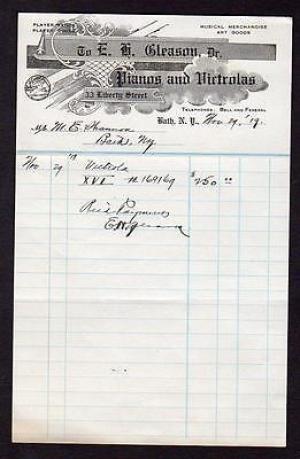 PLAYER PIANOS
PLAYER ROLLS
MUSICAL MERCHANDISE
ART GOODS
To E. H. Gleason, Dr.
Pianos and Victrolas
33 Liberty Street
TELEPHONES: BELL AND FEDERAL
Bath, N. Y., Nov 29, '19.
M. E. Shannon
Bath, Ny.
Nov. 29 '19 Victrola
XVI # 169169 $250 00
Rec'd Payment
E H Gleason